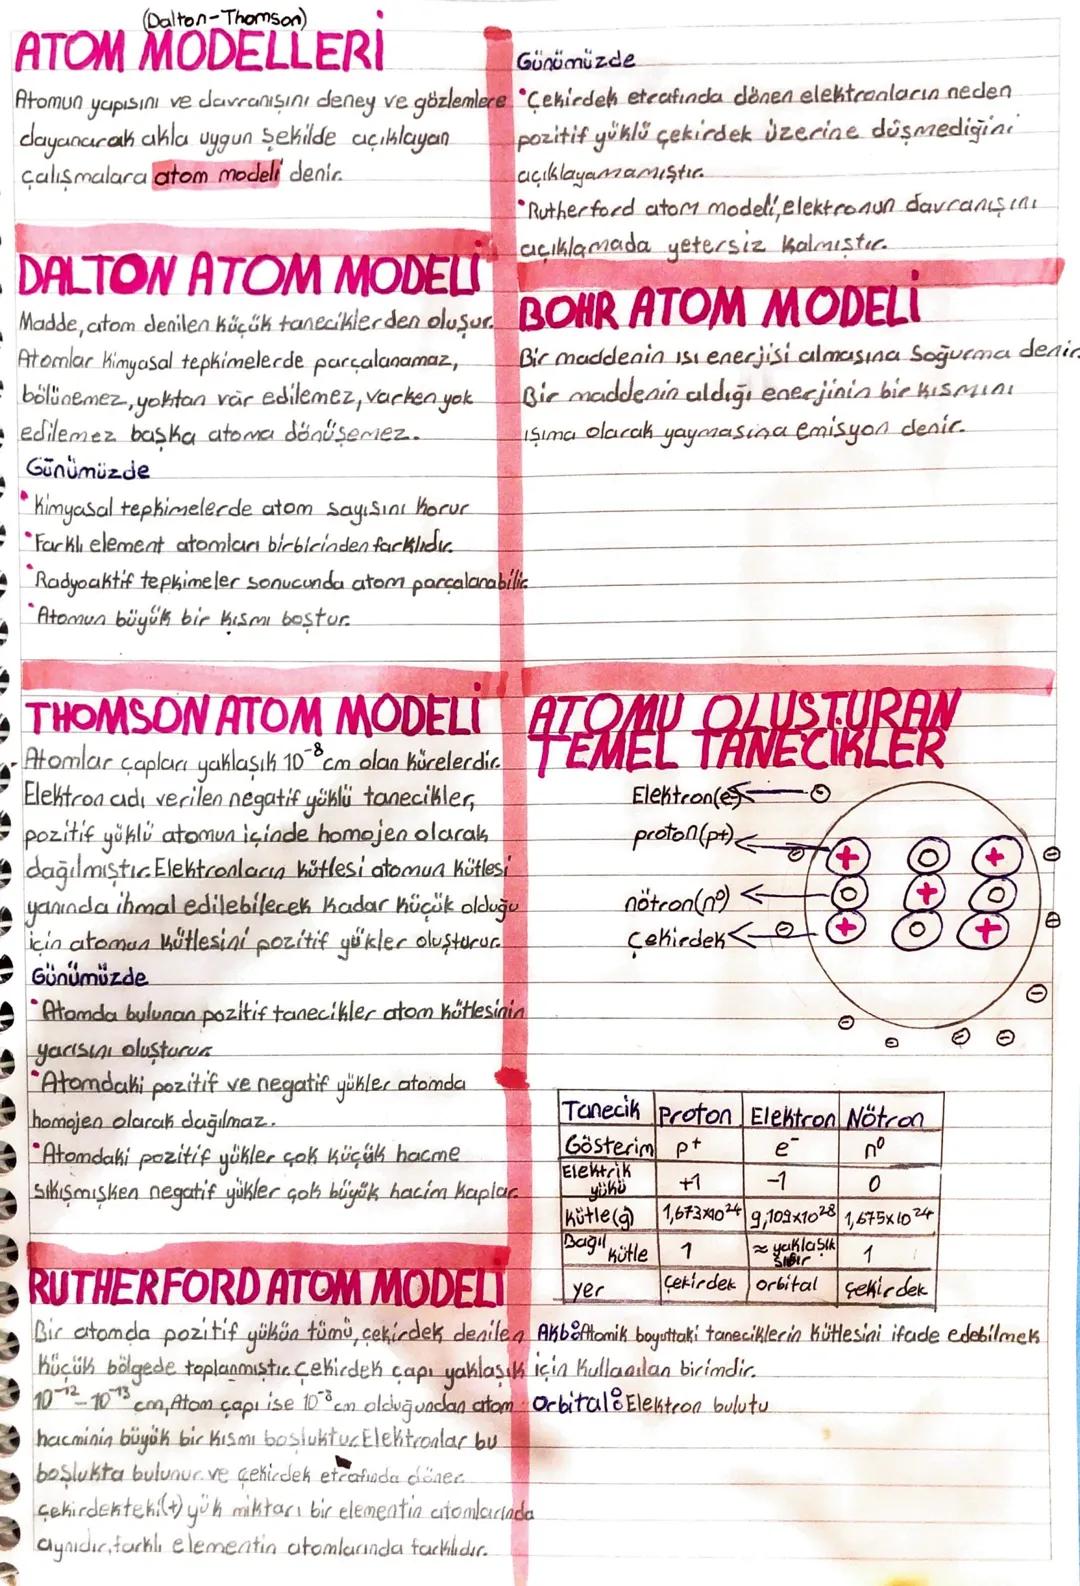 (Dalton-Thomson)
ATOM MODELLERİ
Atomun yapısını ve davranışını deney ve gözlemlere
dayanarak akla uygun şekilde açıklayan
çalışmalara atom modeli denir.
DALTON ATOM MODELİ
Madde, atom denilen küçük taneciklerden oluşur.
Atomlar kimyasal tepkimelerde parçalanamaz,
bölünemez, yoktan var edilemez, varken yok
edilemez başka atoma dönüşemez.
Günümüzde
•Kimyasal tepkimelerde atom sayısını korur
•Farklı element atomları birbirinden farklıdır.
•Radyoaktif tepkimeler sonucunda atom parçalanabilir.
•Atomun büyük bir kısmı boştur.
THOMSON ATOM MODELİ
Atomlar çapları yaklaşık 10⁻⁸ cm olan kürelerdir.
Elektron adı verilen negatif yüklü tanecikler,
pozitif yüklü atomun içinde homojen olarak
dağılmıştır. Elektronların kütlesi atomun kütlesi
yanında ihmal edilebilecek kadar küçük olduğu
için atomun kütlesini pozitif yükler oluşturur.
Günümüzde
•Atomda bulunan pozitif tanecikler atom kütlesinin
yarısını oluşturur
•Atomdaki pozitif ve negatif yükler atomda
homojen olarak dağılmaz.
•Atomdaki pozitif yükler çok küçük hacme
sıkışmışken negatif yükler çok büyük hacim kaplar.
RUTHERFORD ATOM MODELİ
Bir atomda pozitif yükün tümü, çekirdek denilen
küçük bölgede toplanmıştır. Çekirdek çapı yaklaşık
10⁻¹²-10⁻¹³ cm, Atom çapı ise 10⁻⁸ cm olduğundan atom
hacminin büyük bir kısmı boşluktur. Elektronlar bu
boşlukta bulunur ve çekirdek etrafında döner.
Çekirdekteki (+) yük miktarı bir elementin atomlarında
aynıdır, farklı elementin atomlarında farklıdır.
Günümüzde
•Çekirdek etrafında dönen elektronların neden
pozitif yüklü çekirdek üzerine düşmediğini
açıklayamamıştır.
•Rutherford atom modeli, elektronun davranışını
açıklamada yetersiz kalmıştır.
BOHR ATOM MODELİ
Bir maddenin ısı enerjisi almasına Soğurma denir.
Bir maddenin aldığı enerjinin bir kısmını
ışıma olarak yaymasına emisyon denir.
ATOMU OLUŞTURAN
TEMEL TANECİKLER
Elektron(e-)
proton(p+)
nötron(n⁰)
Çekirdek
Tanecik Proton Elektron Nötron
Gösterim p+ e⁻ n⁰
Elektrik yükü +1 -1 0
Kütle(g) 1,673x10²⁴ 9,109x10²⁸ 1,675x10²⁴
Bağıl kütle 1 ≈ yaklaşık sıfır 1
yer Çekirdek orbital Çekirdek
Akb: Atomik boyuttaki taneciklerin kütlesini ifade edebilmek
için kullanılan birimdir.
Orbital: Elektron bulutu